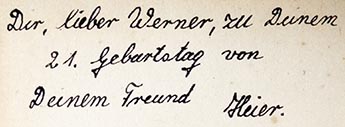 Dir, lieber Werner, zu Deinem
21. Gebartstag von
Deinem Freund Heier.